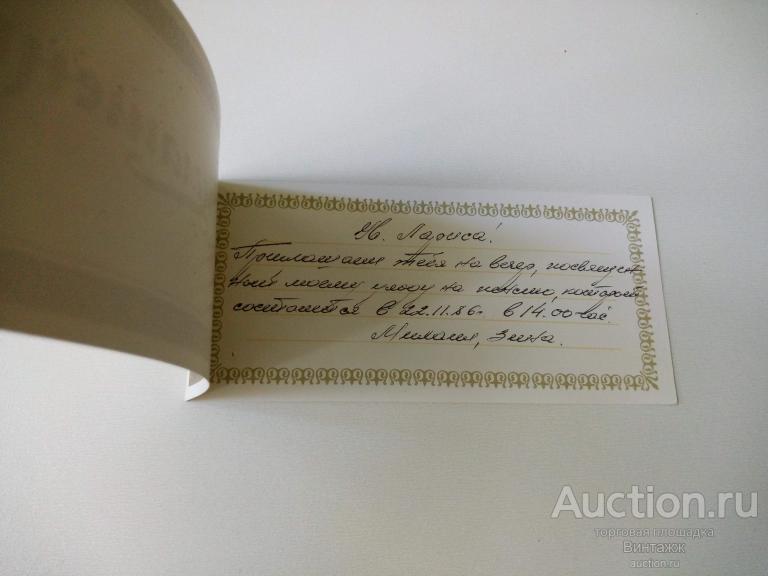 Ув. Лариса!
Приглашаем тебя на вечер, посвящен
ный моему уходу на пенсию, который
состоится в 22.11.86г в 14.00 час.
Михаил, Зина.
Auction.ru
торговая площадка
Винтажж
auction.ru